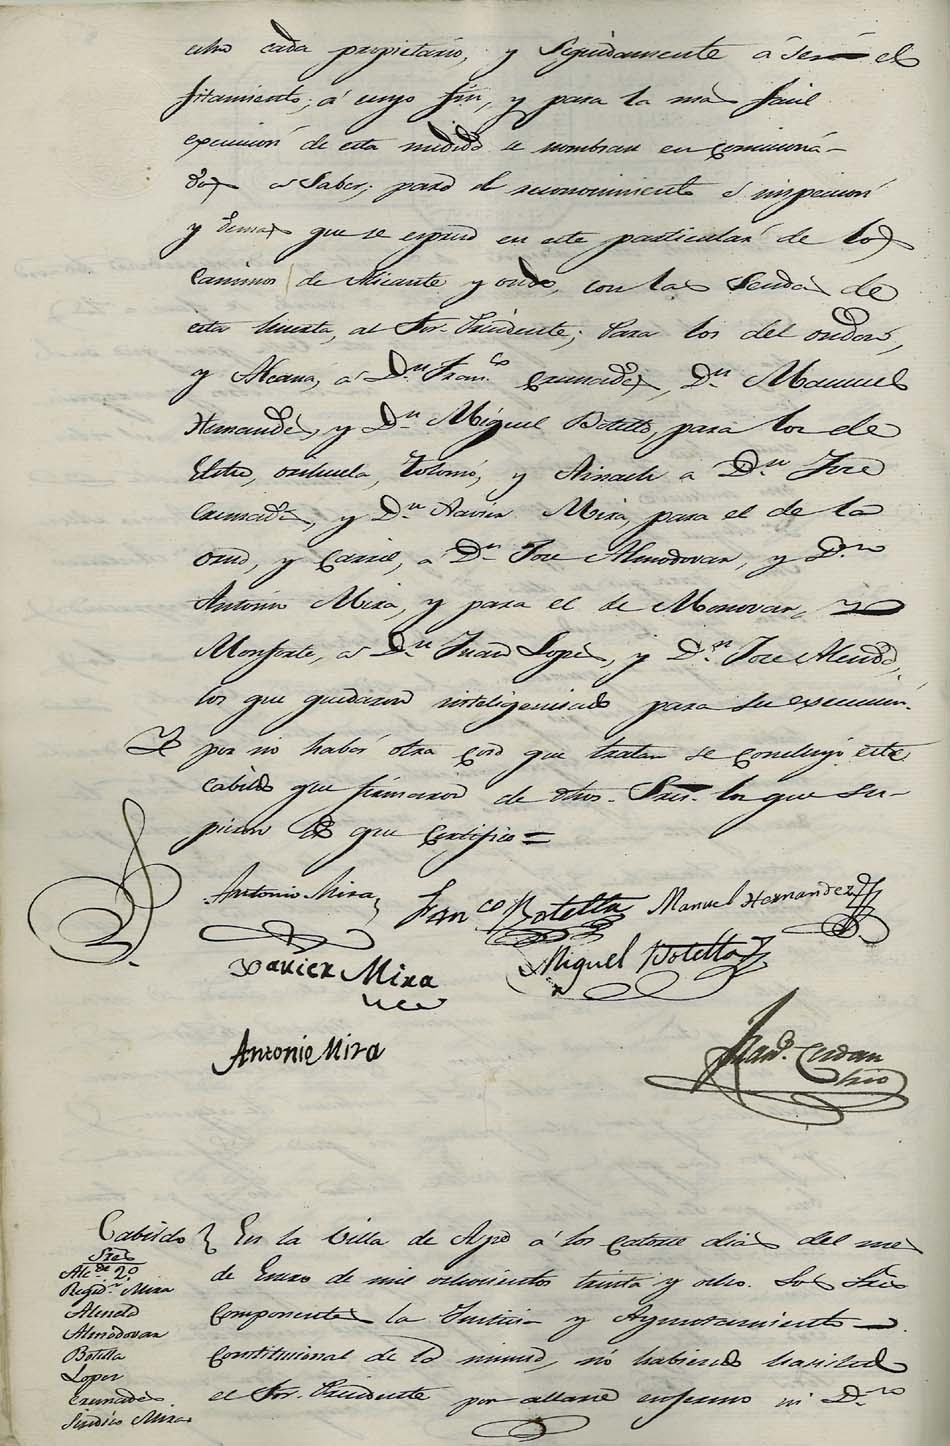 cada propietario, y seguidamente á su el
fitamiento; á cuyo fin, y para la mas facil
execucion de esta medida se nombran en comiciona-
dos á Saber; para el reconocimiento é inspecion
y demas que se espresa en este particular de los
Caminos de Alicante y con las Sendas de
esta huerta, al Sor. Presidente; Para los del
y á Dn. Franco. Cremades, Dn. Manuel
Hernandes, y Dn. Miguel Botella, para los de
Elche, orihuela, y á Dn. Jose
Cremades, y Dn. Xavier Mira, para el de la
y á Dn. Jose Almodovar, y Dn.
Antonio Mira, y para el de Monovar, y
Monforte, á Dn. Juan Lopes, y Dn. Jose
los que quedaron inteligenciados para su execucion.
Y por no haber otra cosa que tratar se concluyó este
cabildo que firmaron de dhos. Sres. los que su-
pieron de que Certifico =
Antonio Mira
Franco Botella
Manuel Hernandez
Xavier Mira
Miguel Botella
Antonio Mira
Cabildo
Sres
Alcde 2o
Regidr. Mira
Almodovar
Botella
Lopez
Cremades
Sindico Mira
En la Villa de Aspe á los Catorce dias del mes
de Enero de mil ochocientos treinta y ocho. Los Sres
Componentes la Justicia y Ayuntamiento
Constitucional de la misma, no habiendo hasistido
el Sor. Presidente por allarse enfermo ni Dn.